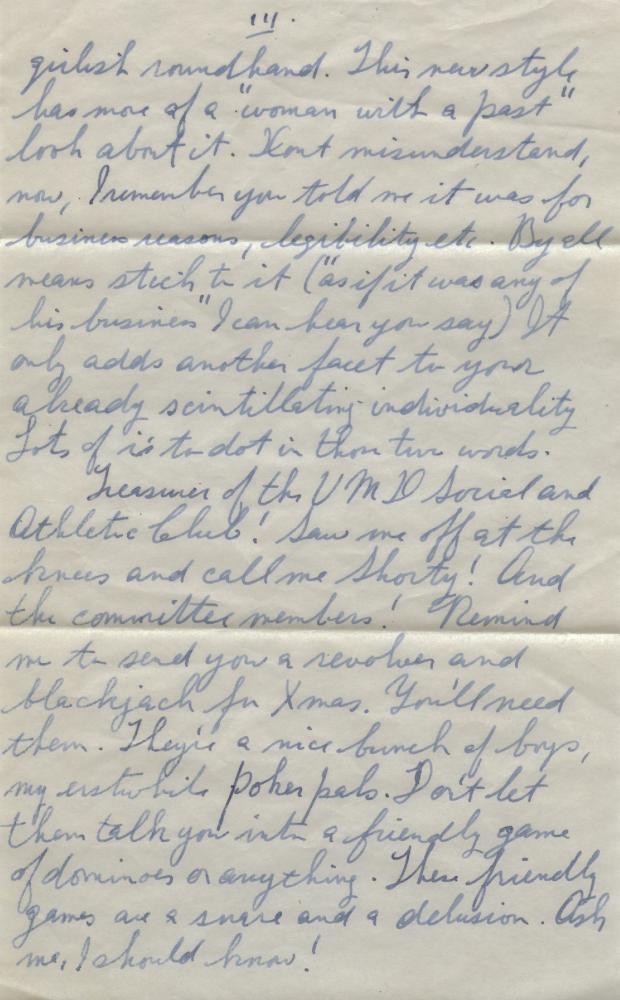 III.
girlish roundhand. This new style
has more of a "woman with a past"
look about it. Dont misunderstand,
now, I remember you told me it was for
business reasons, legibility etc. By all
means stick to it ("as if it was any of
his business" I can hear you say) It
only adds another facet to your
already scintillating individuality
Lots of i's to dot in those two words.
Treasurer of the UMD Social and
Athletic Club! Saw me off at the
knees and call me Shorty! And
the committee members! Remind
me to send you a revolver and
blackjack for Xmas. You'll need
them. They're a nice bunch of boys,
my erstwhile poker pals. Don't let
them talk you into a friendly game
of dominoes or anything. These friendly
games are a snare and a delusion. Ask
me, I should know!